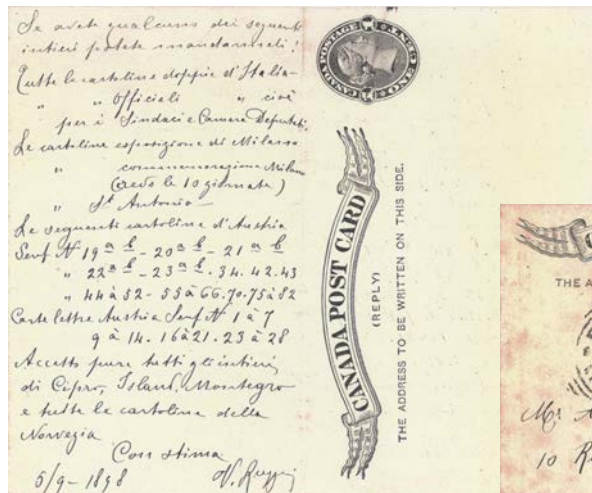 Se avete qualcuno dei seguenti
intieri potete mandarmeli!
Tutte le cartoline doppie d'Italia
" " Officiali " cioè
per i Sindaci e Camera Deputati.
Le cartoline esposizione di Milano
" commemorazione Milano
(credo le 10 giornate)
" St Antonio
Le seguenti cartoline d'Austria
Senf No 19 a b - 20 a b - 21 a b
" 22 a b - 23 a b. 34. 42. 43
" 44 à 52 - 55 à 66. 70. 75 à 82
Carte lettre Austria Senf No 1 à 7
9 à 14. 16 à 21. 23 à 28
Accetto pure tutti gli intieri
di Cipro, Island, Montegro
e tutte le cartoline della
Norvegia
Con stima
5/9 - 1898
CANADA POSTAGE
ONE CENT
CANADA POST CARD
(REPLY)
THE ADDRESS TO BE WRITTEN ON THIS SIDE.
THE A
Mr
10 R